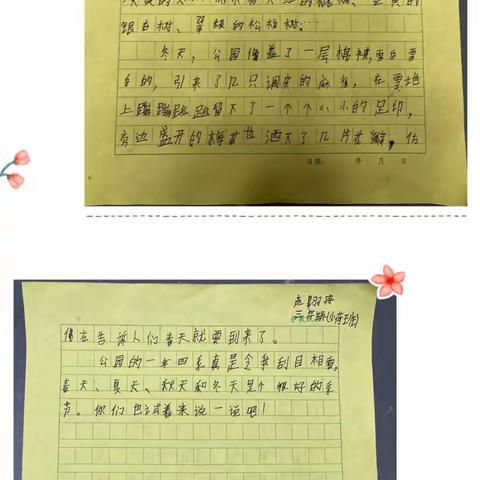 银白树、翠绿的松柏树…
冬天，公园像盖了一层棉被，雪白雪
白的，引来了几只调皮的麻雀，在雪地
上蹦蹦跳跳留下了一个个小小的足印，
旁边盛开的梅花也洒下了几片花瓣，仿
日期： 年 月 日
三年级(6)班
佛在告诉人们春天就要到来了。
公园的一年四季真是令我刮目相看，
春天、夏天、秋天和冬天是个很好的季
节。你们也试着来说一说吧！